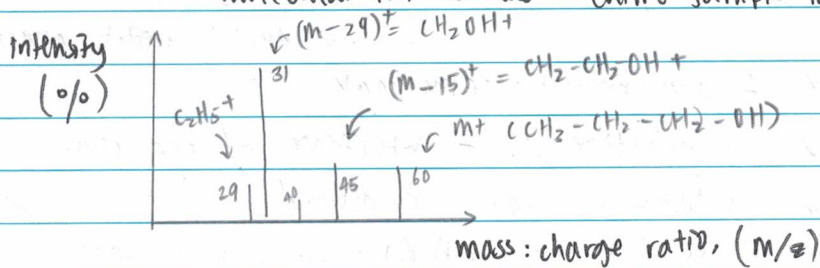 intensity
(%)
(m-29)+ = CH2OH+
31
(m-15)+ = CH2-CH2-OH +
C2H5+
m+ (CH3-CH2-CH2-OH)
29
40
45
60
mass : charge ratio, (m/z)